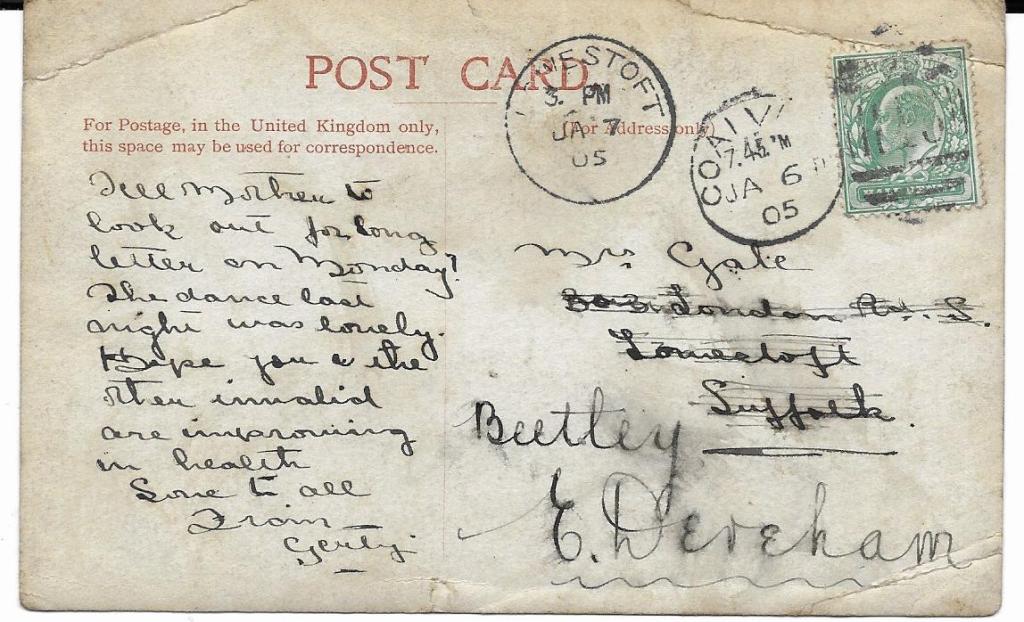 POST CARD
For Postage, in the United Kingdom only,
this space may be used for correspondence.
(For Address only)
LOWESTOFT
3. PM
JA 7
05
7.45 PM
JA 6
05
Tell Mother to
look out for long
letter on Monday!
The dance last
night was lovely.
Hope you & the
other invalid
are improving
in health
Love to all
From
Gerty.
Mrs Gale
London Rd. S.
Lowestoft
Suffolk.
Beetley
E. Dereham